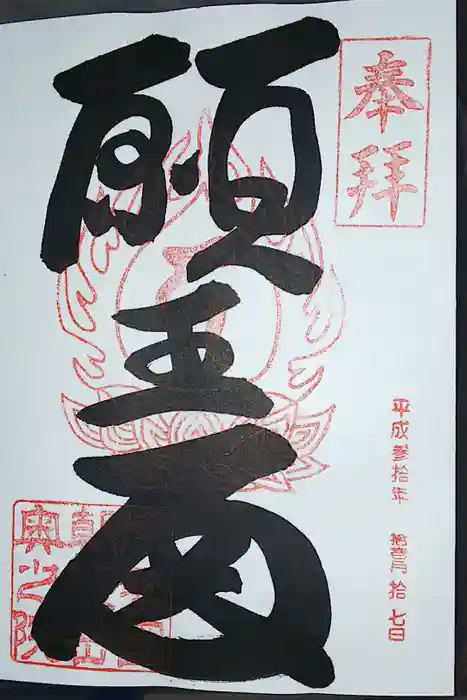 奉拝
平成参拾年 拾壱月拾七日
願王殿
奥之院